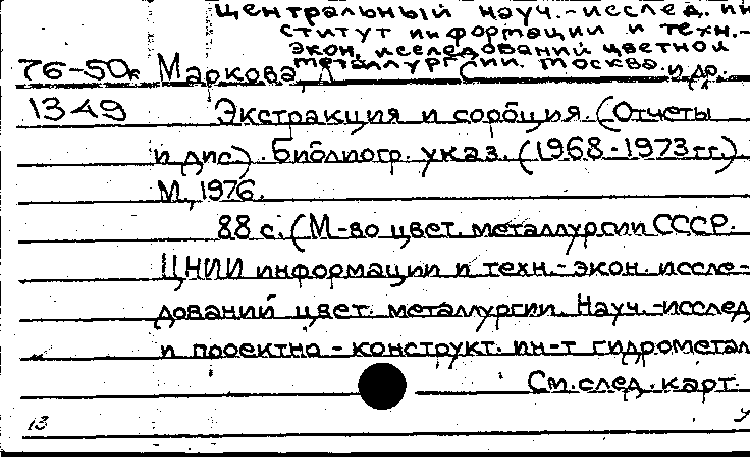 Центральный науч.-исслед. ин
ститут информации и техн.-
экон. исследований цветной
металлургии. Москва.
76-50к Маркова, Л С и др.
1349 Экстракция и сорбция. (Отчеты
и дис). Библиогр. указ. (1968-1973 гг.)
М., 1976.
88 с. (М-во цвет. металлургии СССР.
ЦНИИ информации и техн.-экон. иссле-
дований цвет. металлургии. Науч.-исслед
и проектно-конструкт. ин-т гидрометал
См. след. карт.
13